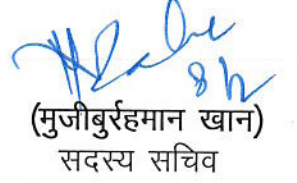 8/2
(मुजीबुर्रहमान खान)
सदस्य सचिव